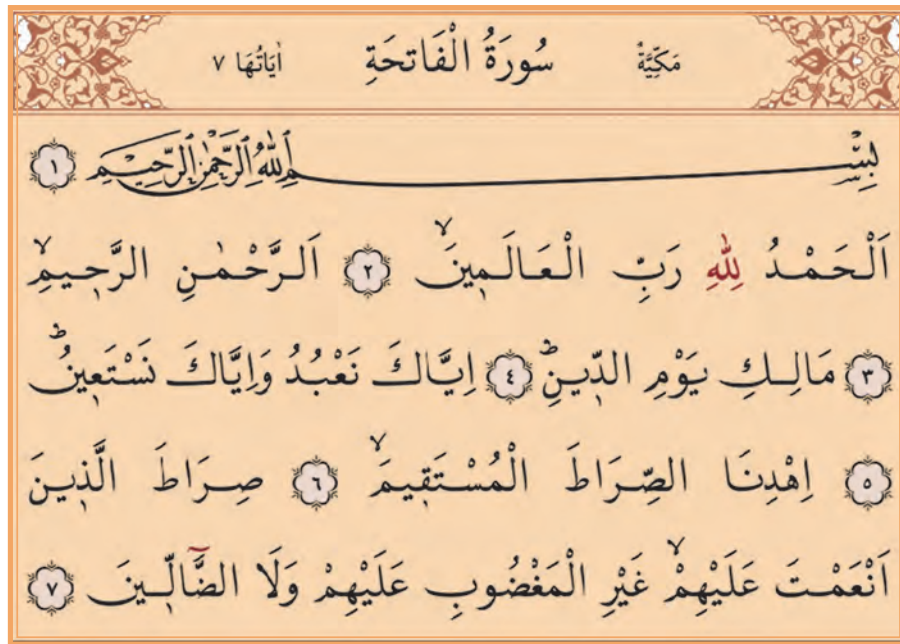 مَكِّيَّةٌ سُورَةُ الْفَاتِحَةِ اٰيَاتُهَا ٧
بِسْمِ اللّٰهِ الرَّحْمٰنِ الرَّحِيمِ ١
اَلْحَمْدُ لِلّٰهِ رَبِّ الْعَالَمٖينَۙ ٢ اَلرَّحْمٰنِ الرَّحٖيمِۙ
٣ مَالِكِ يَوْمِ الدّٖينِؕ ٤ اِيَّاكَ نَعْبُدُ وَاِيَّاكَ نَسْتَعٖينُؕ
٥ اِهْدِنَا الصِّرَاطَ الْمُسْتَقٖيمَۙ ٦ صِرَاطَ الَّذٖينَ
اَنْعَمْتَ عَلَيْهِمْۙ غَيْرِ الْمَغْضُوبِ عَلَيْهِمْ وَلَا الضَّٓالّٖينَ ٧